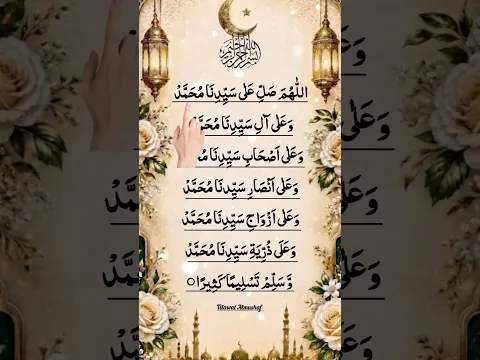 بسم الله الرحمن الرحيم
اللّٰهُمَ صَلِّ عَلٰى سَيِّدِنَا مُحَمَّدْ
وَعَلٰى آلِ سَيِّدِنَا مُحَمَّ
وَعَلٰى اَصْحَابِ سَيِّدِنَا مُ
وَعَلٰى اَنْصَارِ سَيِّدِنَا مُحَمَّدْ
وَعَلٰى اَزْوَاجِ سَيِّدِنَا مُحَمَّدْ
وَعَلٰى ذُرِّيَةِ سَيِّدِنَا مُحَمَّدْ
وَّسَلِّمْ تَسْلِيمًا كَثِيرًا
Tilawat Almushaf